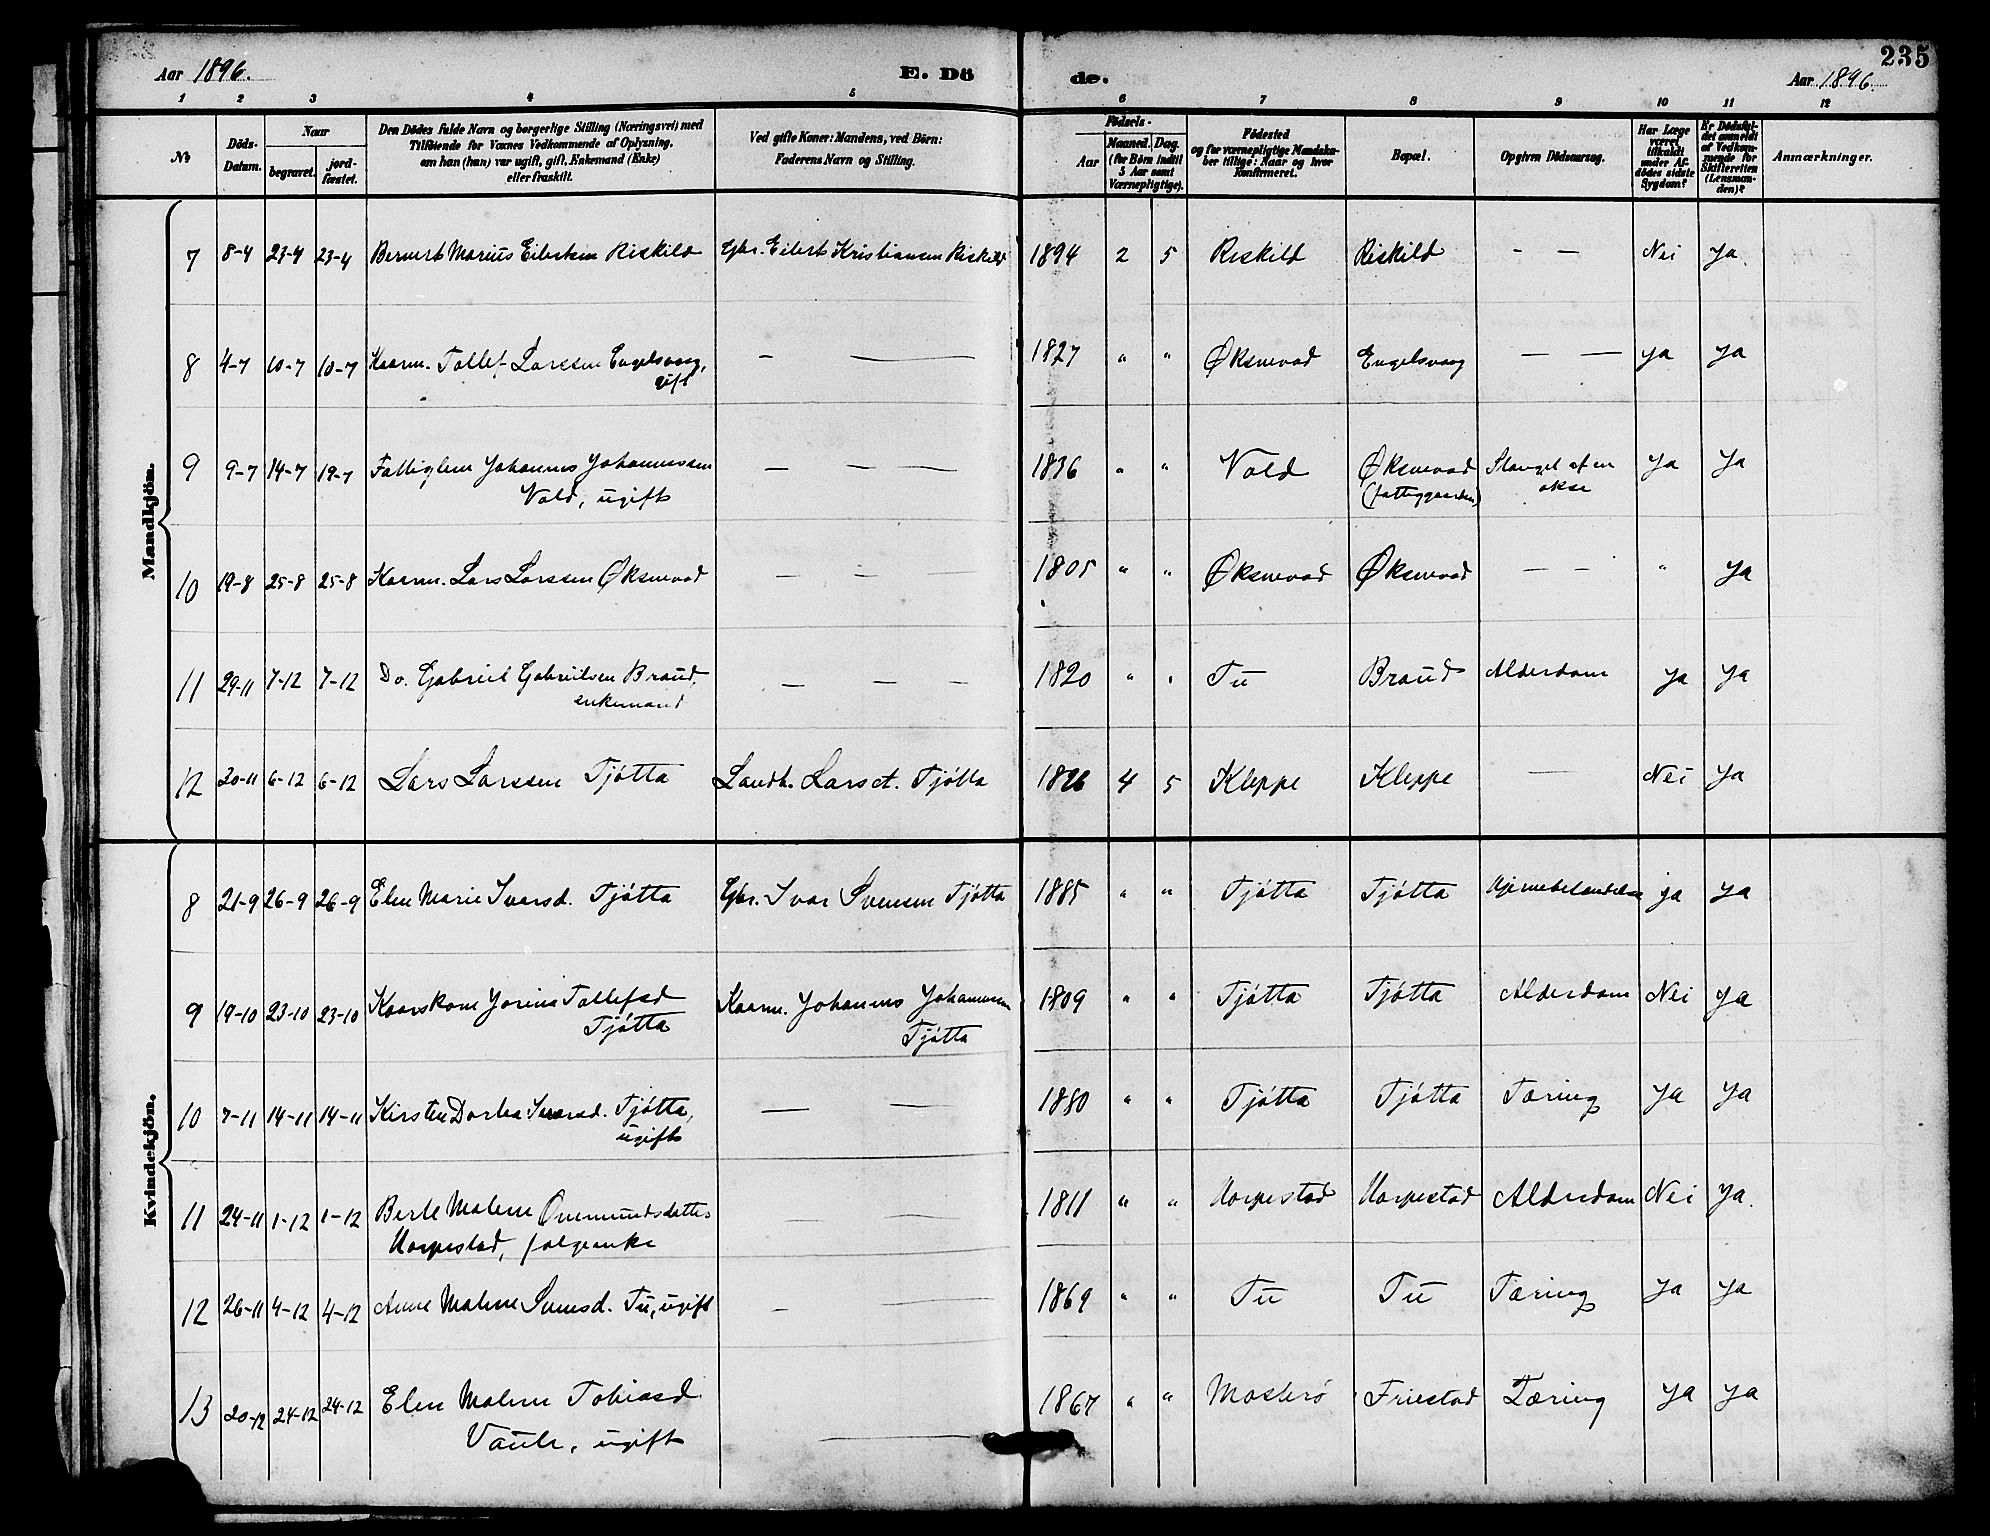 235
Aar 1896. E. Dö de. Aar 1896
1 2 3 4 5 6 7 8 9 10 11 12
No
Döds-Datum.
Naar
begravet.
jord-fæstet.
Den Dödes fulde Navn og borgerlige Stilling (Næringsvei) med
Tilföiende for Voxnes Vedkommende af Oplysning,
om han (hun) var ugift, gift, Enkemand (Enke)
eller fraskilt.
Ved gifte Koner: Mandens, ved Börn:
Faderens Navn og Stilling.
Födsels-
Aar
Maaned. Dag.
(for Börn indtil
5 Aar samt
Værnepligtige).
Födested
og for værnepligtige Mandska-
ber tillige: Naar og hvor
konfirmeret.
Bopæl.
Opgiven Dödsaarsag.
Har Læge
været
tilkaldt
under Af-
dödes sidste
Sygdom?
Er Dödsfal-
det anmeldt
af Vedkom-
mende for
Skifteretten
(Lensman-
den)?
Anmærkninger.
Mandkjön.
7 8-4 23-4 23-4 Bernert Marius Eilertsen Riskild Gbr. Eilert Kristiansen Riskild 1894 2 5 Riskild Riskild — — Nei Ja.
8 4-7 10-7 10-7 Kaarm. Tollef Larssen Engelsvaag, — — 1827 " " Øksnevad Engelsvaag — — ja ja
gift
9 9-7 14-7 19-7 Fattiglem Johannes Johannessen — — — 1836 " " Vold Øksnevad Stanget af en ja ja
Vold, ugift (fattiggaarden) okse
10 19-8 25-8 25-8 Kaarm. Lars Larssen Øksnevad — — — 1805 " " Øksnevad Øksnevad — — " ja
11 29-11 7-12 7-12 Do. Gabriel Gabrielsen Braud, — — — 1820 " " Tu Braud Alderdom ja ja
enkemand
12 30-11 6-12 6-12 Lars Larssen Tjøtta Landh. Lars A. Tjøtta 1896 4 5 Kleppe Kleppe — Nei ja
Kvindekjön.
8 21-9 26-9 26-9 Elen Marie Ivarsd. Tjøtta Gbr. Ivar Svensen Tjøtta 1885 " " Tjøtta Tjøtta ja ja
9 19-10 23-10 23-10 Kaarskone Jorina Tollefsd Kaarm. Johannes Johannessen 1809 " " Tjøtta Tjøtta Alderdom Nei ja
Tjøtta Tjøtta
10 7-11 14-11 14-11 Kirsten Dortea Ivarsd. Tjøtta, — — 1880 " " Tjøtta Tjøtta Tæring ja ja
ugift
11 24-11 1-12 1-12 Berte Malene Ommundsdatter — — 1811 " " Horpestad Horpestad Alderdom Nei ja.
Horpestad, folgeenke
12 26-11 4-12 4-12 Anne Malene Svensd. Tu, ugift — — 1869 " " Tu Tu Tæring ja ja
13 20-12 24-12 24-12 Elen Malene Tobiasd 1867 " " Mosterø Friestad Tæring ja ja
Vaule, ugift —